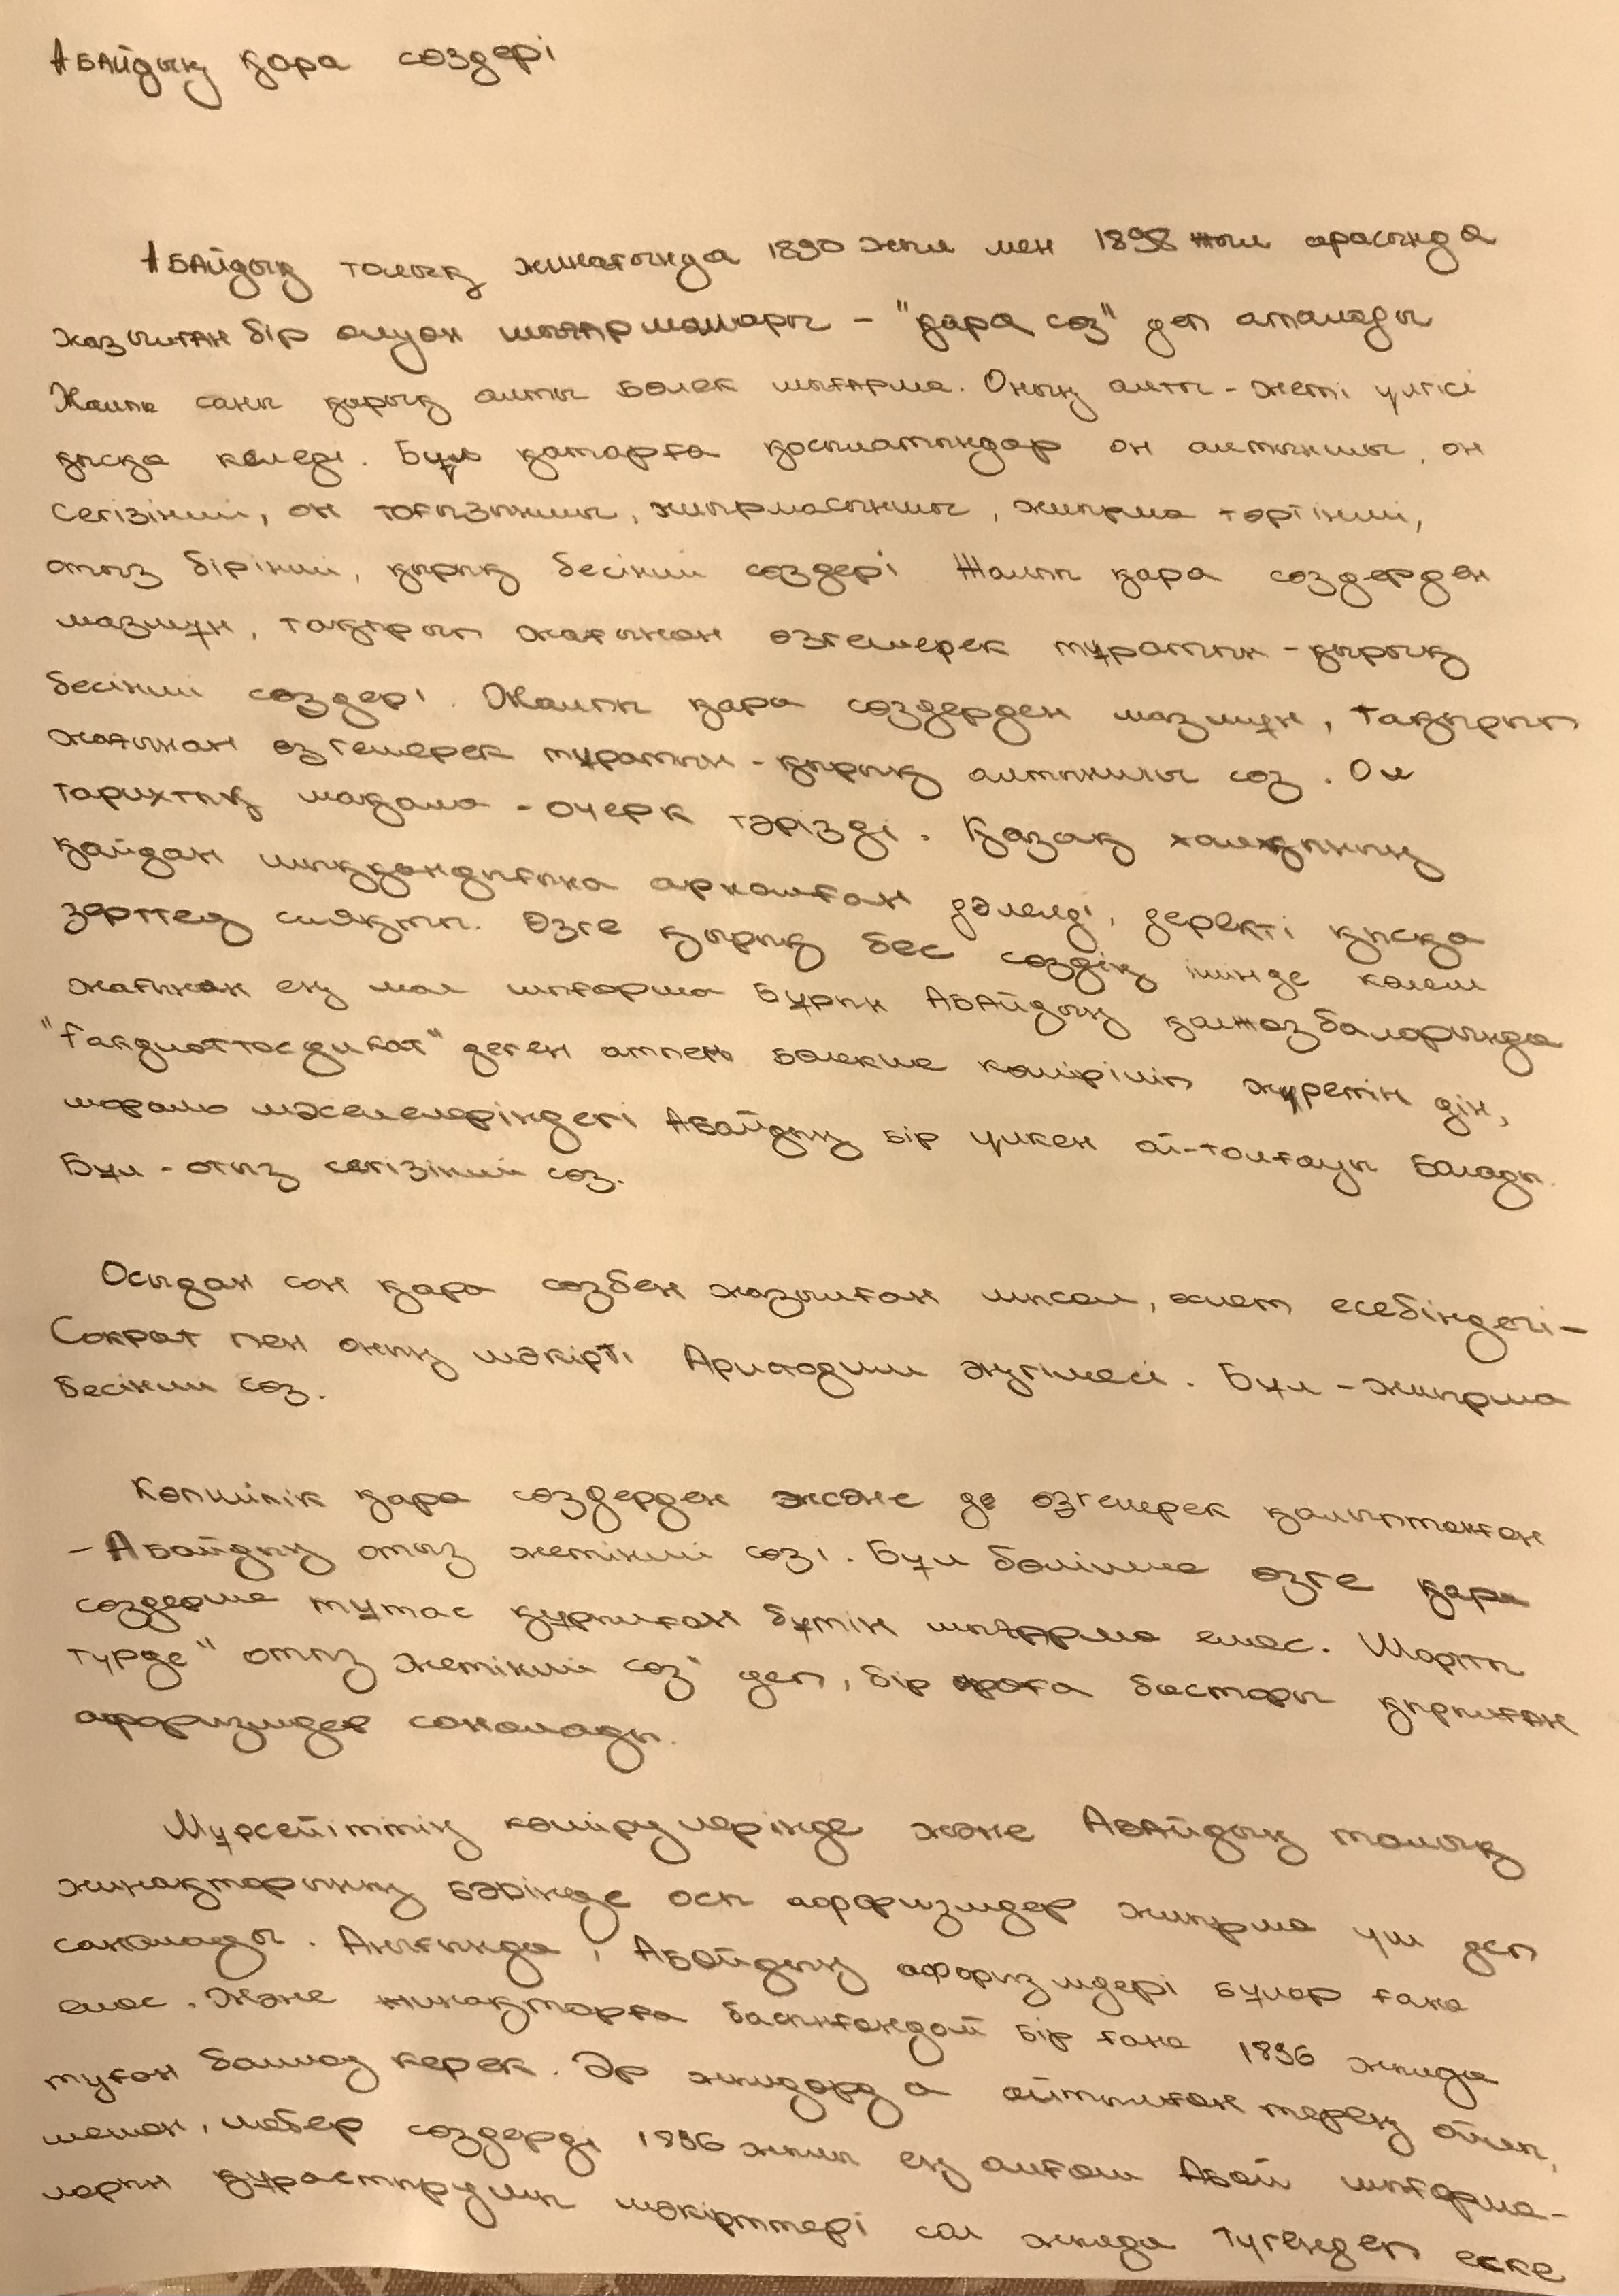 Абайдың қара сөздері
Абайдың толық жинағында 1890 жыл мен 1898 жыл арасында
жазылған бір алуан шығармалары - "қара сөз" деп аталады
Жалпы саны қырық алты бөлек шығарма. Оның алты - жеті үлгісі
қысқа келеді. Бұл қатарға қосылатындар он алтыншы, он
сегізінші, он тоғызыншы, жиырмасыншы, жиырма төртінші,
отыз бірінші, қырық бесінші сөздері Жалпы қара сөздерден
мазмұн, тақырып жағынан өзгешерек тұратын - қырық
бесінші сөздері. Жалпы қара сөздерден мазмұн, тақырып
жағынан өзгешерек тұратын - қырық алтыншы сөз. Ол
тарихтық мақала - очерк тәрізді. Қазақ халқының
қайдан шыққандығына арналған дәлелді, деректі қысқа
зерттеу сияқты. Өзге қырық бес сөздің ішінде көлем
жағынан ең мол шығарма бұрын Абайдың қолжазбаларында
"Ғақлиаттасдиқат" деген атпен бөлекше көшіріліп жүретін дін,
мораль мәселелеріндегі Абайдың бір үлкен ой-толғауы болады.
Бұл - отыз сегізінші сөз.
Осыдан соң қара сөзбен жазылған мысал, хикмет есебіндегі -
Сократ пен оның шәкірті Аристодим әңгімесі. Бұл - жиырма
бесінші сөз.
Көпшілік қара сөздерден және де өзгешерек қалыптанған
- Абайдың отыз жетінші сөзі. Бұл бөлінше өзге қара
сөздерше тұтас құрылған бүтін шығарма емес. Шартты
түрде "отыз жетінші сөз" деп, бір араға бастары құрылған
афоризмдер саналады.
Мүрсейіттің көшірулерінде және Абайдың толық
жинақтарының бәрінде осы афоризмдер жиырма үш деп
саналады. Анығында, Абайдың афоризмдері бұлар ғана
емес. Және жинақтарға басынғандай бір ғана 1896 жылда
туған болмау керек. Әр жылдарда айтылған терең ойлы,
шешен, шебер сөздерді 1896 жылы ең алғаш Абай шығарма-
ларын құрастырушы шәкірттері сол жылда түгендеп еске